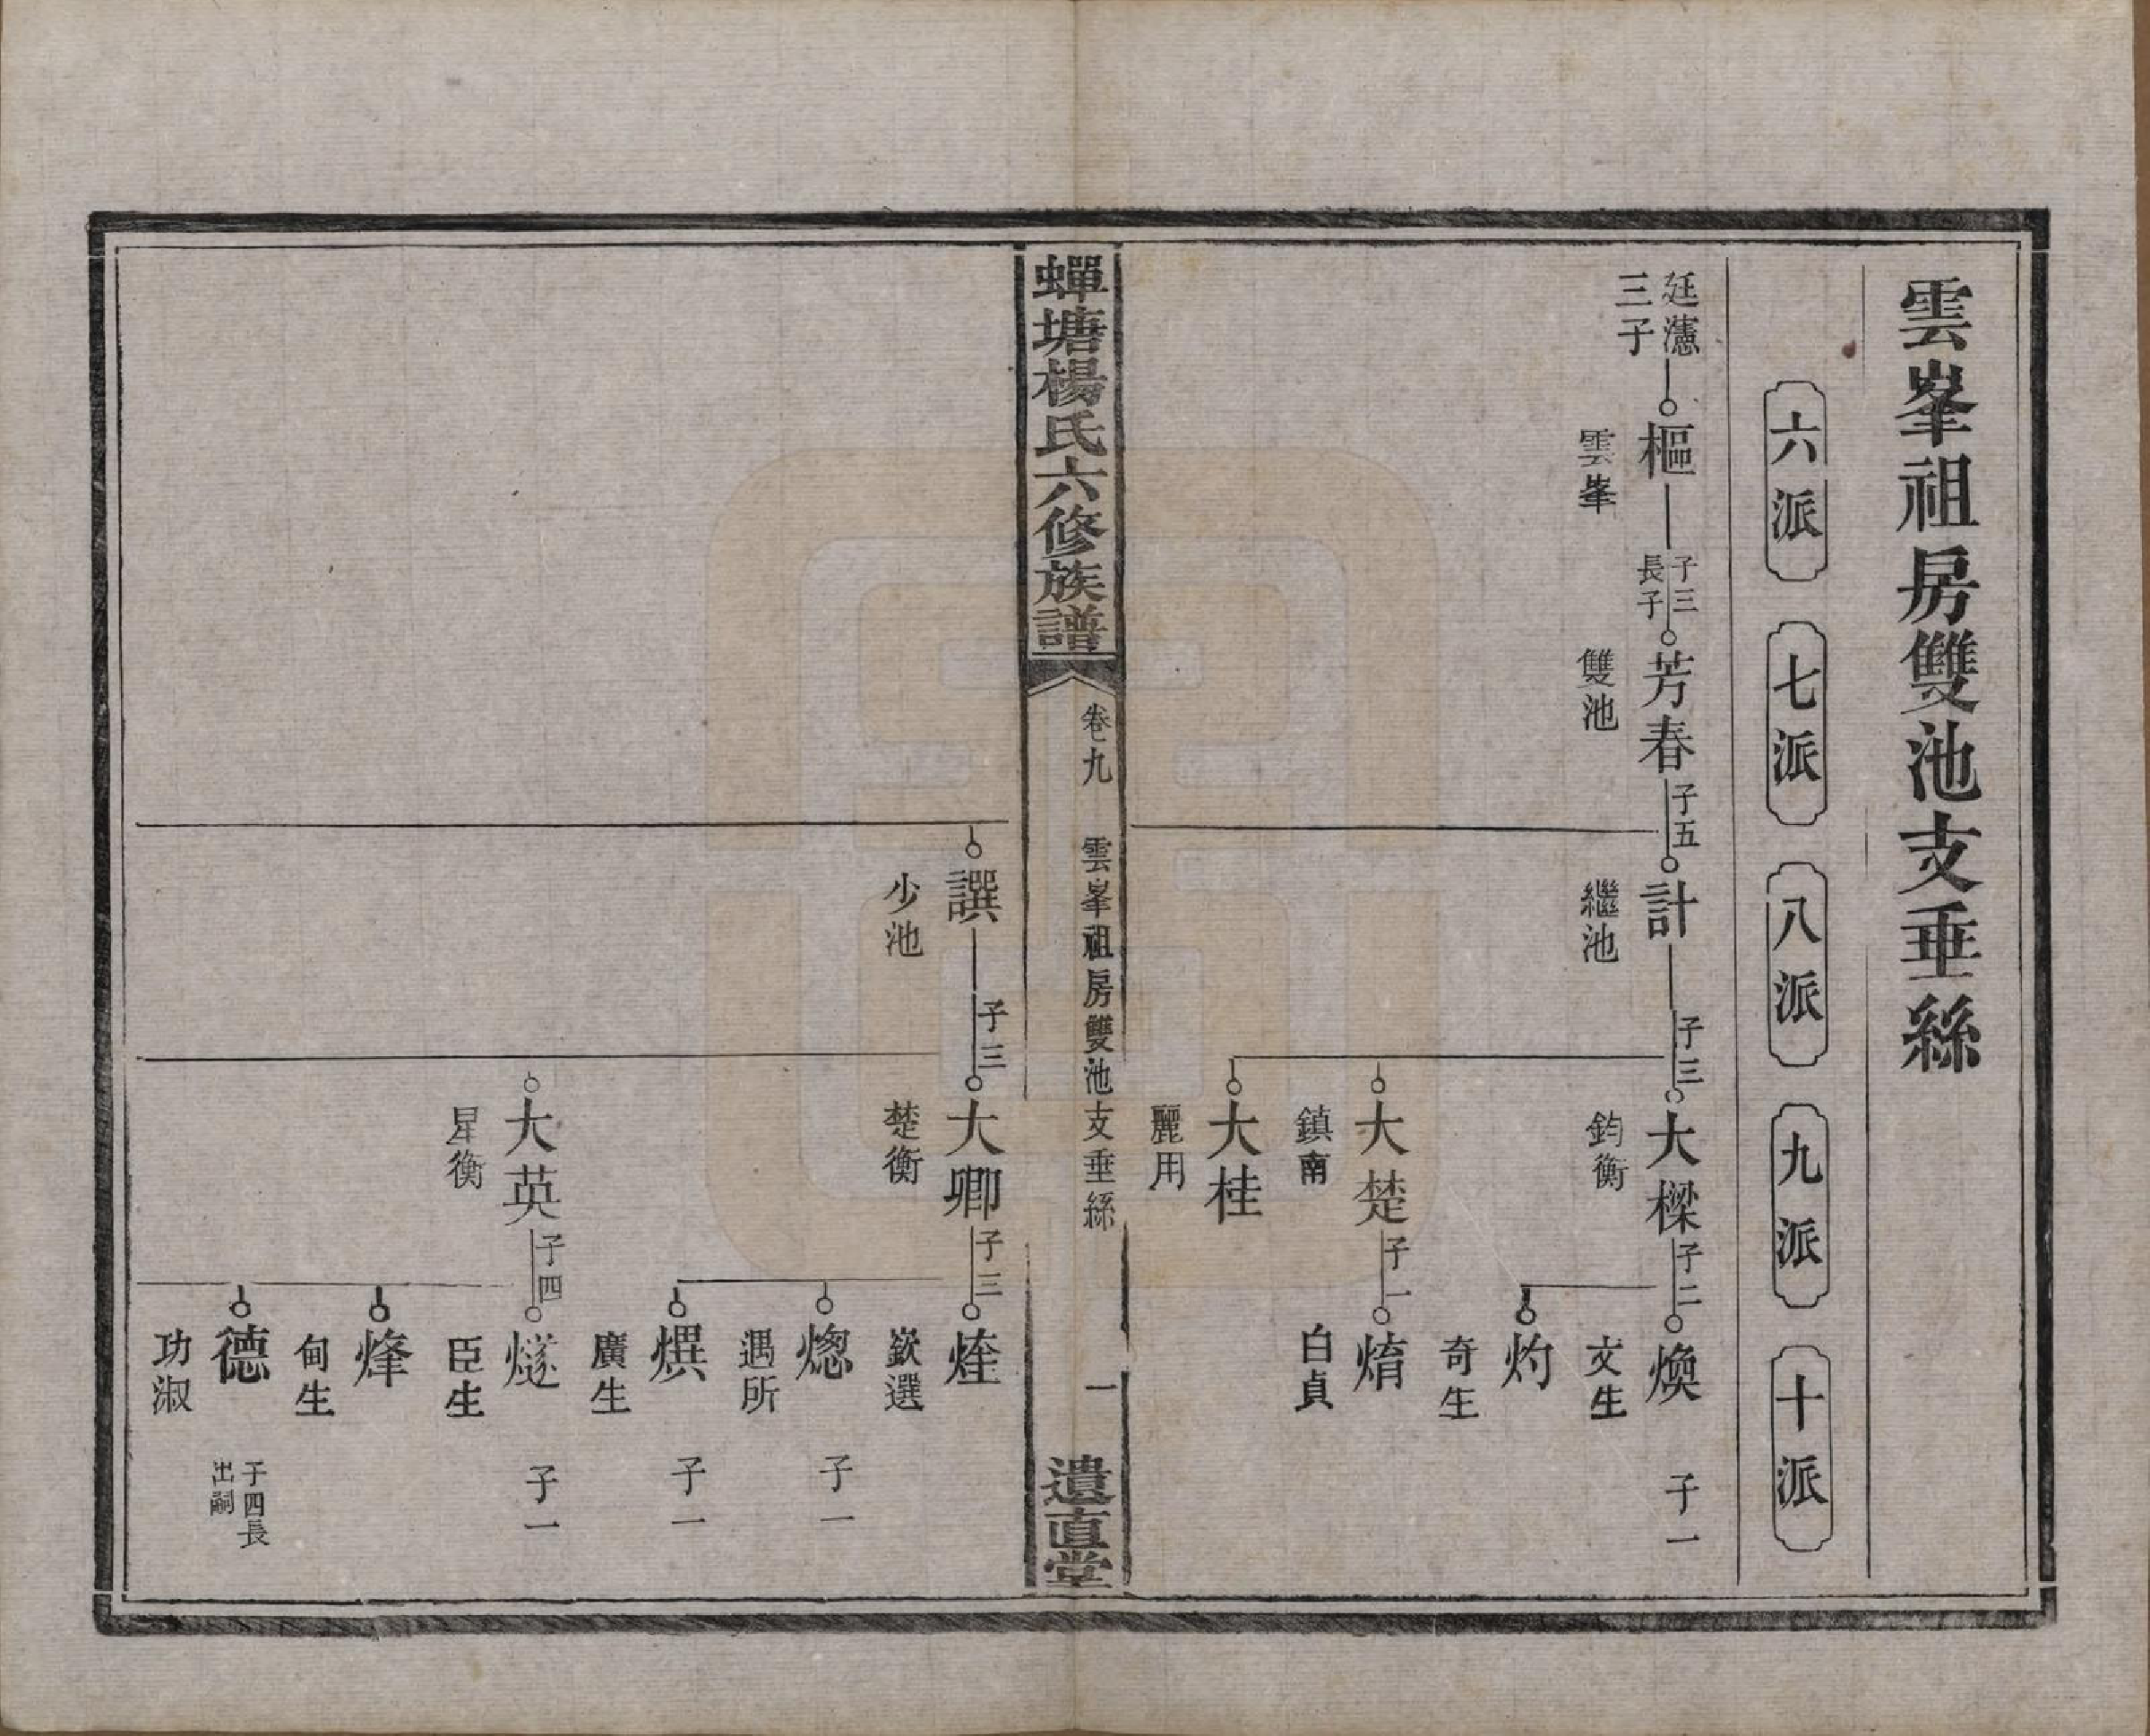 雲峯祖房雙池支垂絲
六派
七派
八派
九派
十派
廷藼
三子
樞
雲峯
子三
長子
芳春
雙池
子五
計
繼池
子三
大樑
鈞衡
子二
煥
文生
子一
灼
奇生
大楚
鎮南
子一
焴
白貞
大桂
麗用
蟬塘楊氏六修族譜
卷九
雲峯祖房雙池支垂絲
一
遺直堂
譔
少池
子三
大卿
楚衡
子三
煃
欽選
熜
遇所
子一
熼
廣生
子一
大英
星衡
子四
燧
臣生
子一
烽
甸生
德
功淑
子四長
出嗣